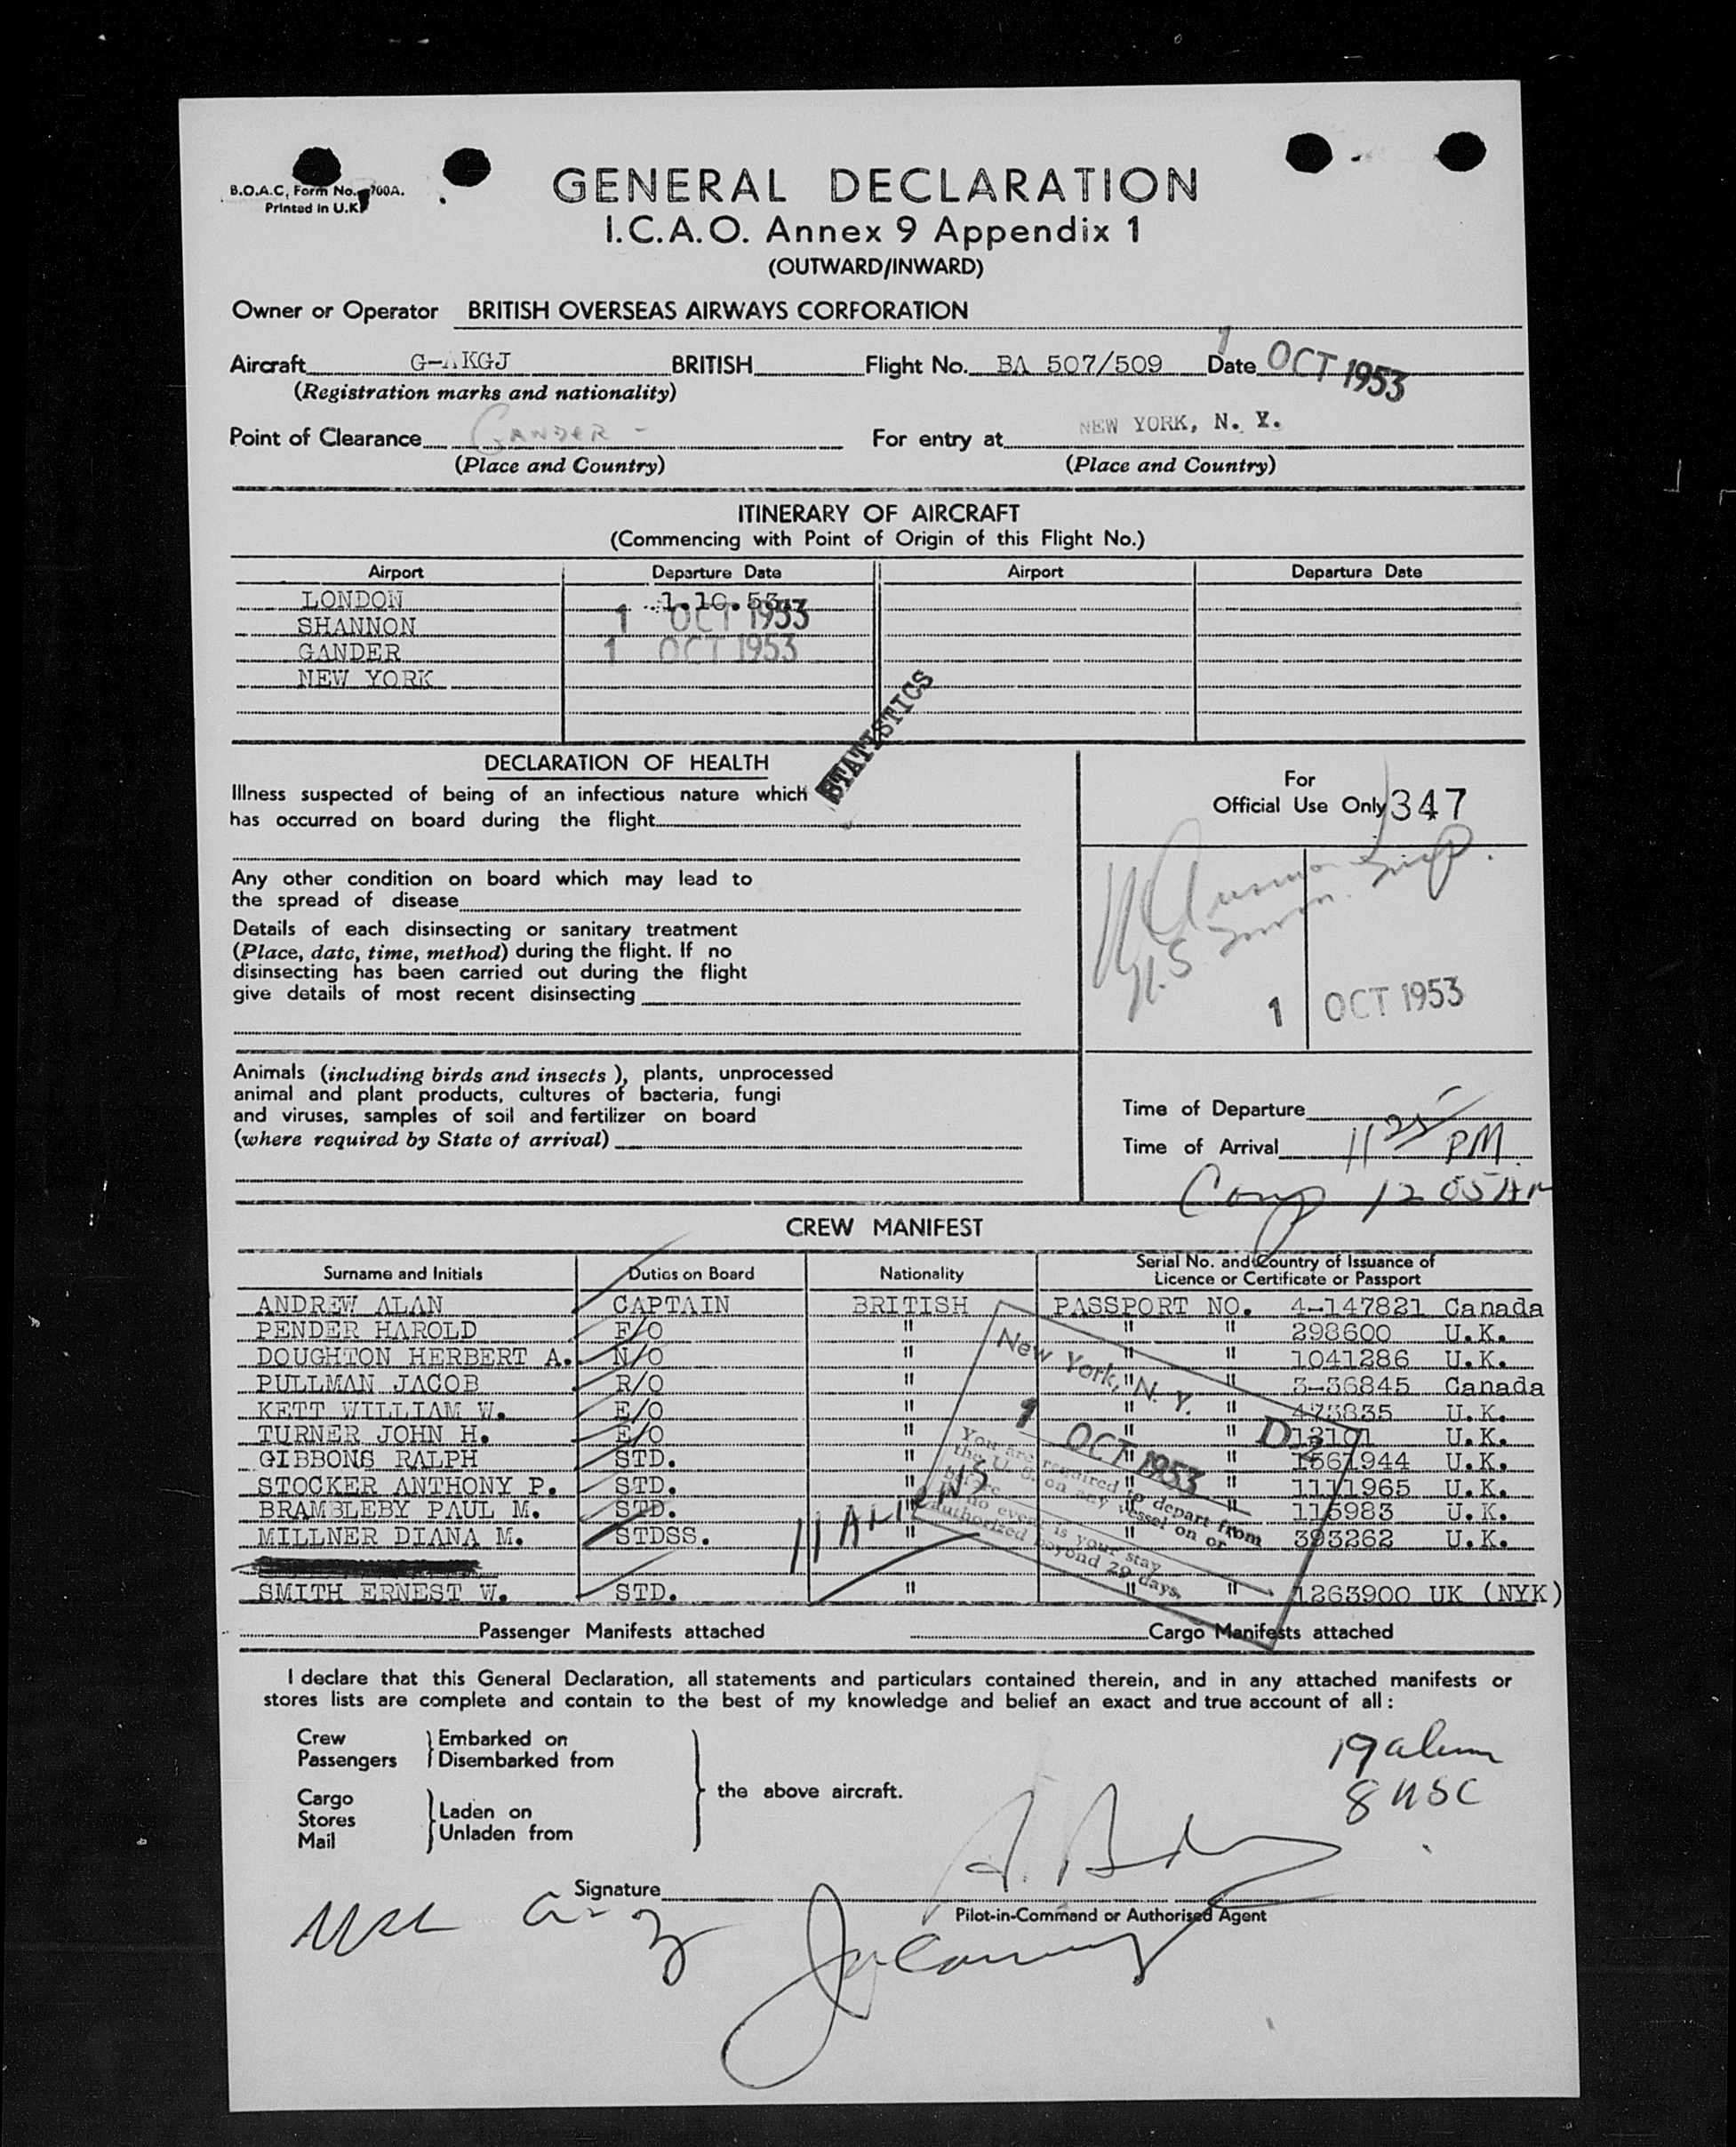 B.O.A.C, Form No. 700A.
Printed in U.K.
GENERAL DECLARATION
I.C.A.O. Annex 9 Appendix 1
(OUTWARD/INWARD)
Owner or Operator BRITISH OVERSEAS AIRWAYS CORPORATION
Aircraft G-AKGJ BRITISH Flight No. BA 507/509 Date 1 OCT 1953
(Registration marks and nationality)
Point of Clearance GANDER - For entry at NEW YORK, N. Y.
(Place and Country) (Place and Country)
ITINERARY OF AIRCRAFT
(Commencing with Point of Origin of this Flight No.)
Airport Departure Date Airport Departure Date
LONDON 1.10.53.
SHANNON 1 OCT 1953
GANDER 1 OCT 1953
NEW YORK
STATISTICS
DECLARATION OF HEALTH
Illness suspected of being of an infectious nature which
has occurred on board during the flight
Any other condition on board which may lead to
the spread of disease
Details of each disinsecting or sanitary treatment
(Place, date, time, method) during the flight. If no
disinsecting has been carried out during the flight
give details of most recent disinsecting
For
Official Use Only 347
U.S. Imm. Insp.
1 OCT 1953
Animals (including birds and insects), plants, unprocessed
animal and plant products, cultures of bacteria, fungi
and viruses, samples of soil and fertilizer on board
(where required by State of arrival)
Time of Departure
Time of Arrival 11 25 PM
Comp 12 05 AM
CREW MANIFEST
Surname and Initials Duties on Board Nationality Serial No. and Country of Issuance of
Licence or Certificate or Passport
ANDREW ALAN CAPTAIN BRITISH PASSPORT NO. 4-147821 Canada
PENDER HAROLD F/O " " " 298600 U.K.
DOUGHTON HERBERT A. N/O " " " 1041286 U.K.
PULLMAN JACOB R/O " " " 3-36845 Canada
KETT WILLIAM W. E/O " " " 473835 U.K.
TURNER JOHN H. E/O " " " U.K.
GIBBONS RALPH STD. " " " 1567944 U.K.
STOCKER ANTHONY P. STD. " " " U.K.
BRAMBLEBY PAUL M. STD. " " " 115983 U.K.
MILLNER DIANA M. STDSS. " " 393262 U.K.
SMITH ERNEST W. STD. " " " 1263900 UK (NYK)
11 ALIENS
New York, N. Y.
1 OCT 1953 D2
You are required to depart from
the U. S. on any vessel on or
before
In no event is your stay
authorized beyond 29 days.
Passenger Manifests attached Cargo Manifests attached
I declare that this General Declaration, all statements and particulars contained therein, and in any attached manifests or
stores lists are complete and contain to the best of my knowledge and belief an exact and true account of all :
Crew
Passengers
Embarked on
Disembarked from
Cargo
Stores
Mail
Laden on
Unladen from
the above aircraft.
19 alien
8 USC
Signature
Pilot-in-Command or Authorised Agent